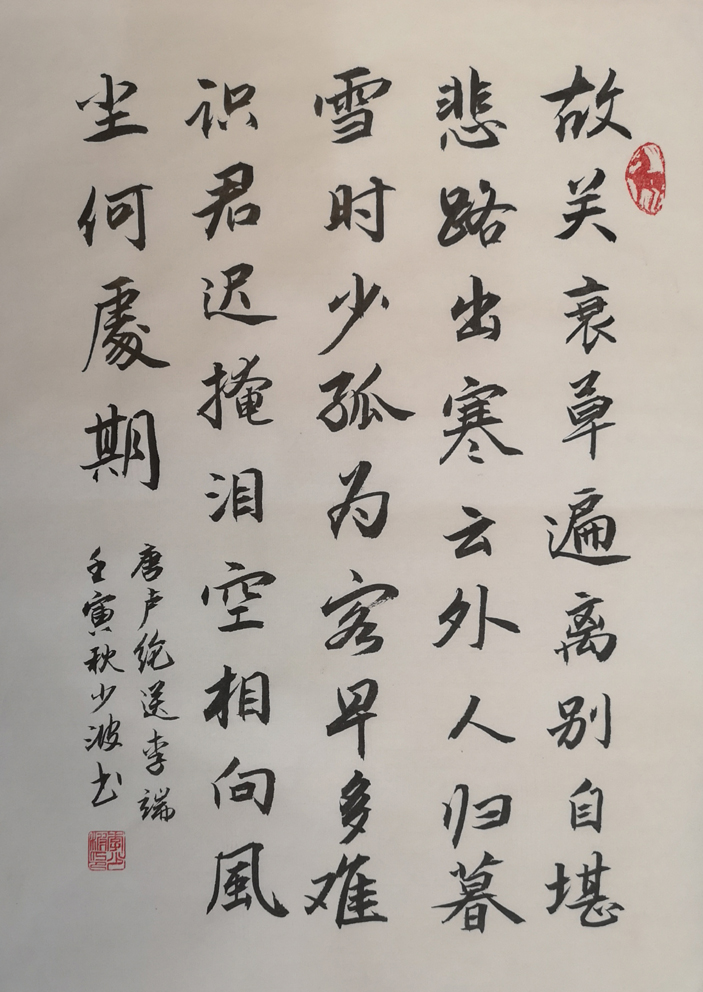 故关衰草遍离别自堪
悲路出寒云外人归暮
雪时少孤为客早多难
识君迟掩泪空相向風
尘何處期
唐卢纶送李端
壬寅秋少波书